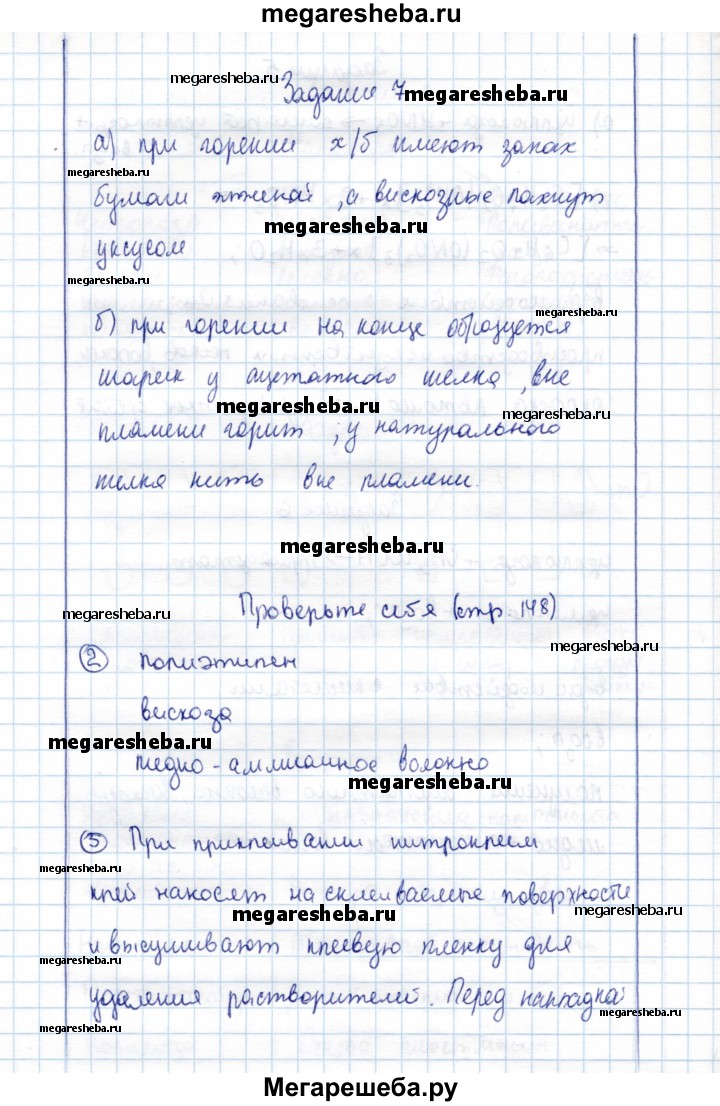 megaresheba.ru
Задание 7
megaresheba.ru
megaresheba.ru
а) при горении х/б имеют запах
megaresheba.ru
бумаги жженой, а вискозные пахнут
megaresheba.ru
уксусом
megaresheba.ru
б) при горении на конце образуется
шарик у ацетатного шелка, вне
megaresheba.ru
megaresheba.ru
пламени горит; у натурального
шелка нить вне пламени.
megaresheba.ru
Проверьте себя (стр. 148)
megaresheba.ru
megaresheba.ru
② полиэтилен
вискоза
megaresheba.ru
медно-аммиачное волокно
megaresheba.ru
③ При приклеивании нитроклеем
megaresheba.ru
клей наносят на склеиваемые поверхности
megaresheba.ru
megaresheba.ru
и высушивают клеевую пленку для
megaresheba.ru
удаления растворителей. Перед накладкой
megaresheba.ru
megaresheba.ru
Мегарешеба.ру